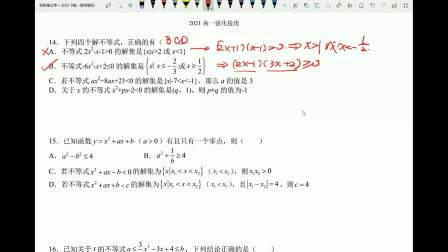 2021 高一强化提优
14. 下列四个解不等式，正确的有（ BCD
A．不等式 2x²-x-1>0 的解集是{x|x>2 或 x<1} → (2x+1)(x-1)>0 ⇒ x>1 或 x<-1/2.
B．不等式-6x²-x+2≤0 的解集是{x|x≤-2/3 或 x≥1/2} ⇒ (2x-1)(3x+2)≥0
C．若不等式 ax²+8ax+21<0 的解集是{x|-7<x<-1}，那么 a 的值是 3
D．关于 x 的不等式 x²+px-2<0 的解集是(q，1)，则 p+q 的值为-1
15．已知函数 y=x²+ax+b（a>0）有且只有一个零点，则（ ）
A．a²-b²≤4 B．a²+1/b≥4
C．若不等式 x²+ax-b<0 的解集为{x|x₁<x<x₂}（x₁<x₂），则 x₁x₂>0
D．若不等式 x²+ax+b<c 的解集为{x|x₁<x<x₂}（x₁<x₂），且|x₁-x₂|=4，则 c=4
16．已知关于 x 的不等式 a≤3/4x²-3x+4≤b，下列结论正确的是（ ）